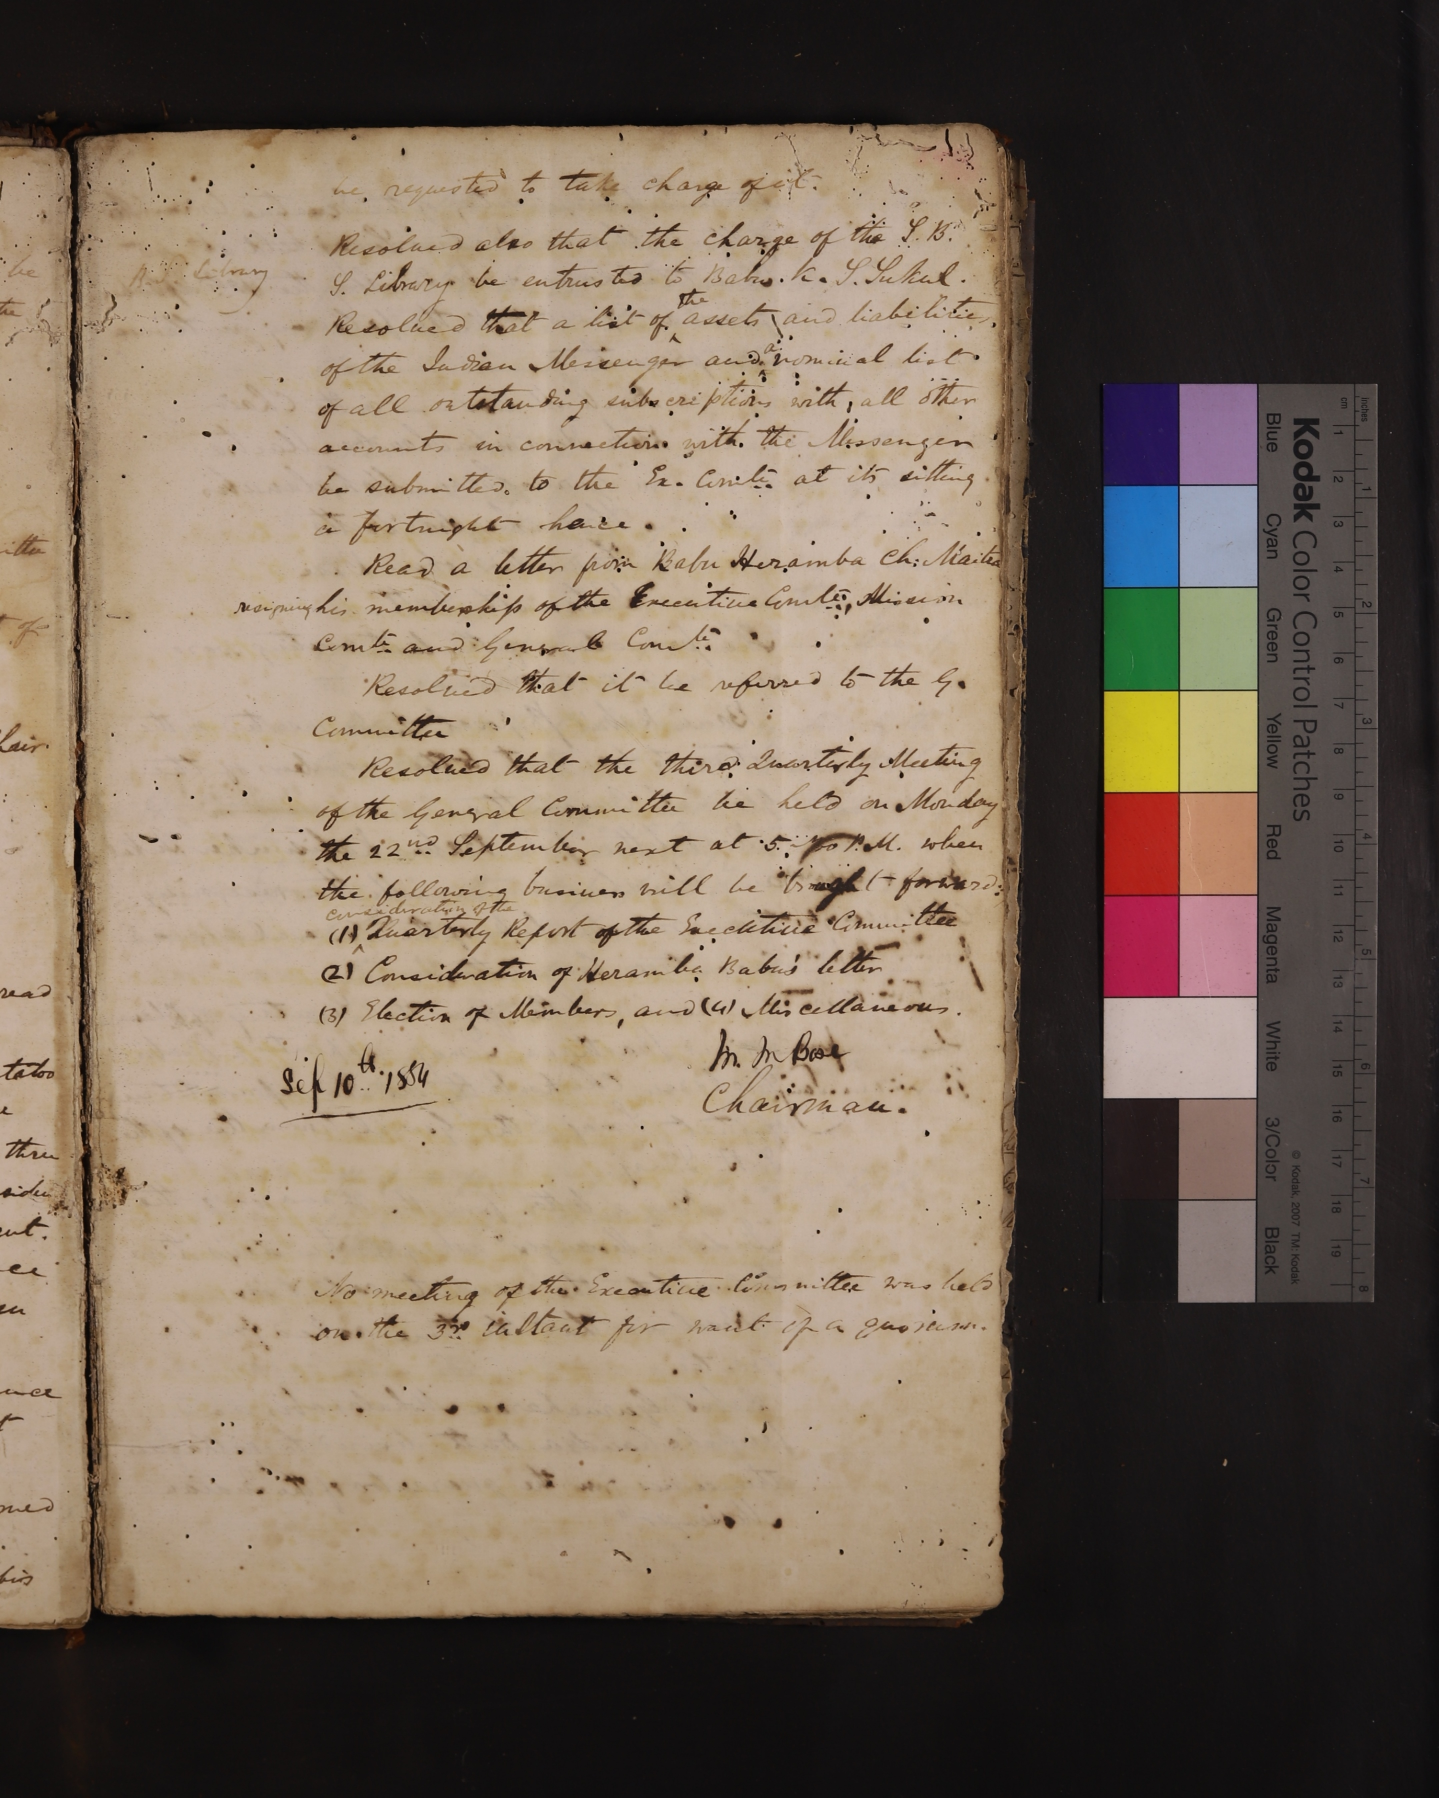 be requested to take charge of it.
Resolved also that the charge of the S. B.
Library
S. Library be entrusted to Babu K. S. Sukul.
Resolved that a list of the assets and liabilities
of the Indian Messenger and a nominal list
of all outstanding subscriptions with all other
accounts in connection with the Messenger
be submitted to the Ex. Comte. at its sitting
a fortnight hence.
Read a letter from Babu Heramba Ch. Maitra
resigning his membership of the Executive Comte., Mission
Comte. and General Comte.
Resolved that it be referred to the G.
Committee
Resolved that the third Quarterly Meeting
of the General Committee be held on Monday
the 22nd September next at 5. P.M. when
the following business will be brought forward:
(1) consideration of the Quarterly Report of the Executive Committee
(2) Consideration of Heramba Babu's letter
(3) Election of Members, and (4) Miscellaneous.
M. M Bose
Sep 10th. 1884
Chairman.
No meeting of the Executive Committee was held
on the 3rd instant for want of a quorum.
be
the
ittee
of
hair
read
three
ent.
ee
med
his
Kodak Color Control Patches
Blue Cyan Green Yellow Red Magenta White 3/Color Black
© Kodak, 2007 TM: Kodak
inches 1 2 3 4 5 6 7 8
cm 1 2 3 4 5 6 7 8 9 10 11 12 13 14 15 16 17 18 19